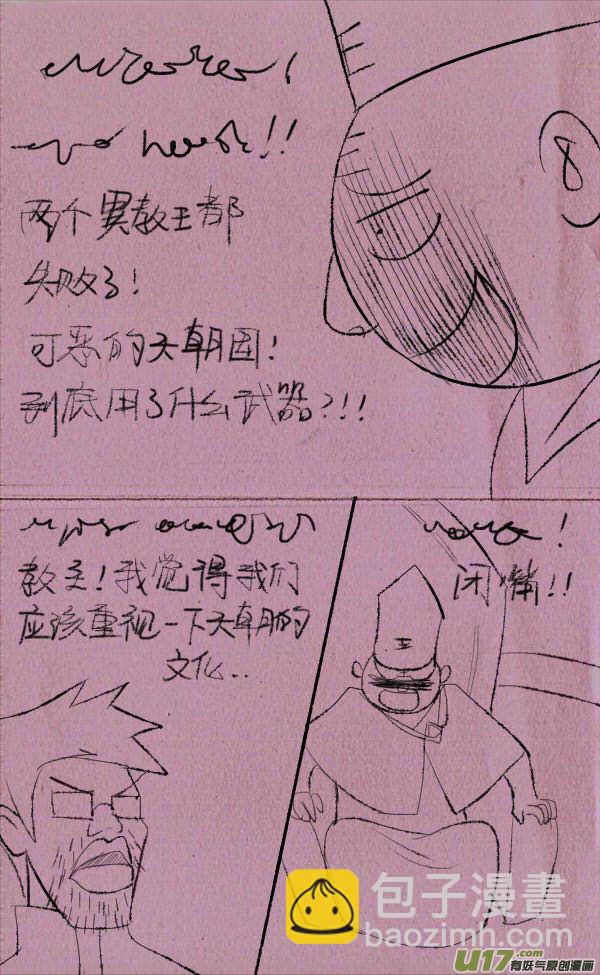 两个异教王都
失败了！
可恶的天朝国！
到底用了什么武器？！！
教主！我觉得我们
应该重视一下天朝的
文化..
闭嘴！！
王
包子漫畫
baozimh.com
U17.com
有妖气原创漫画